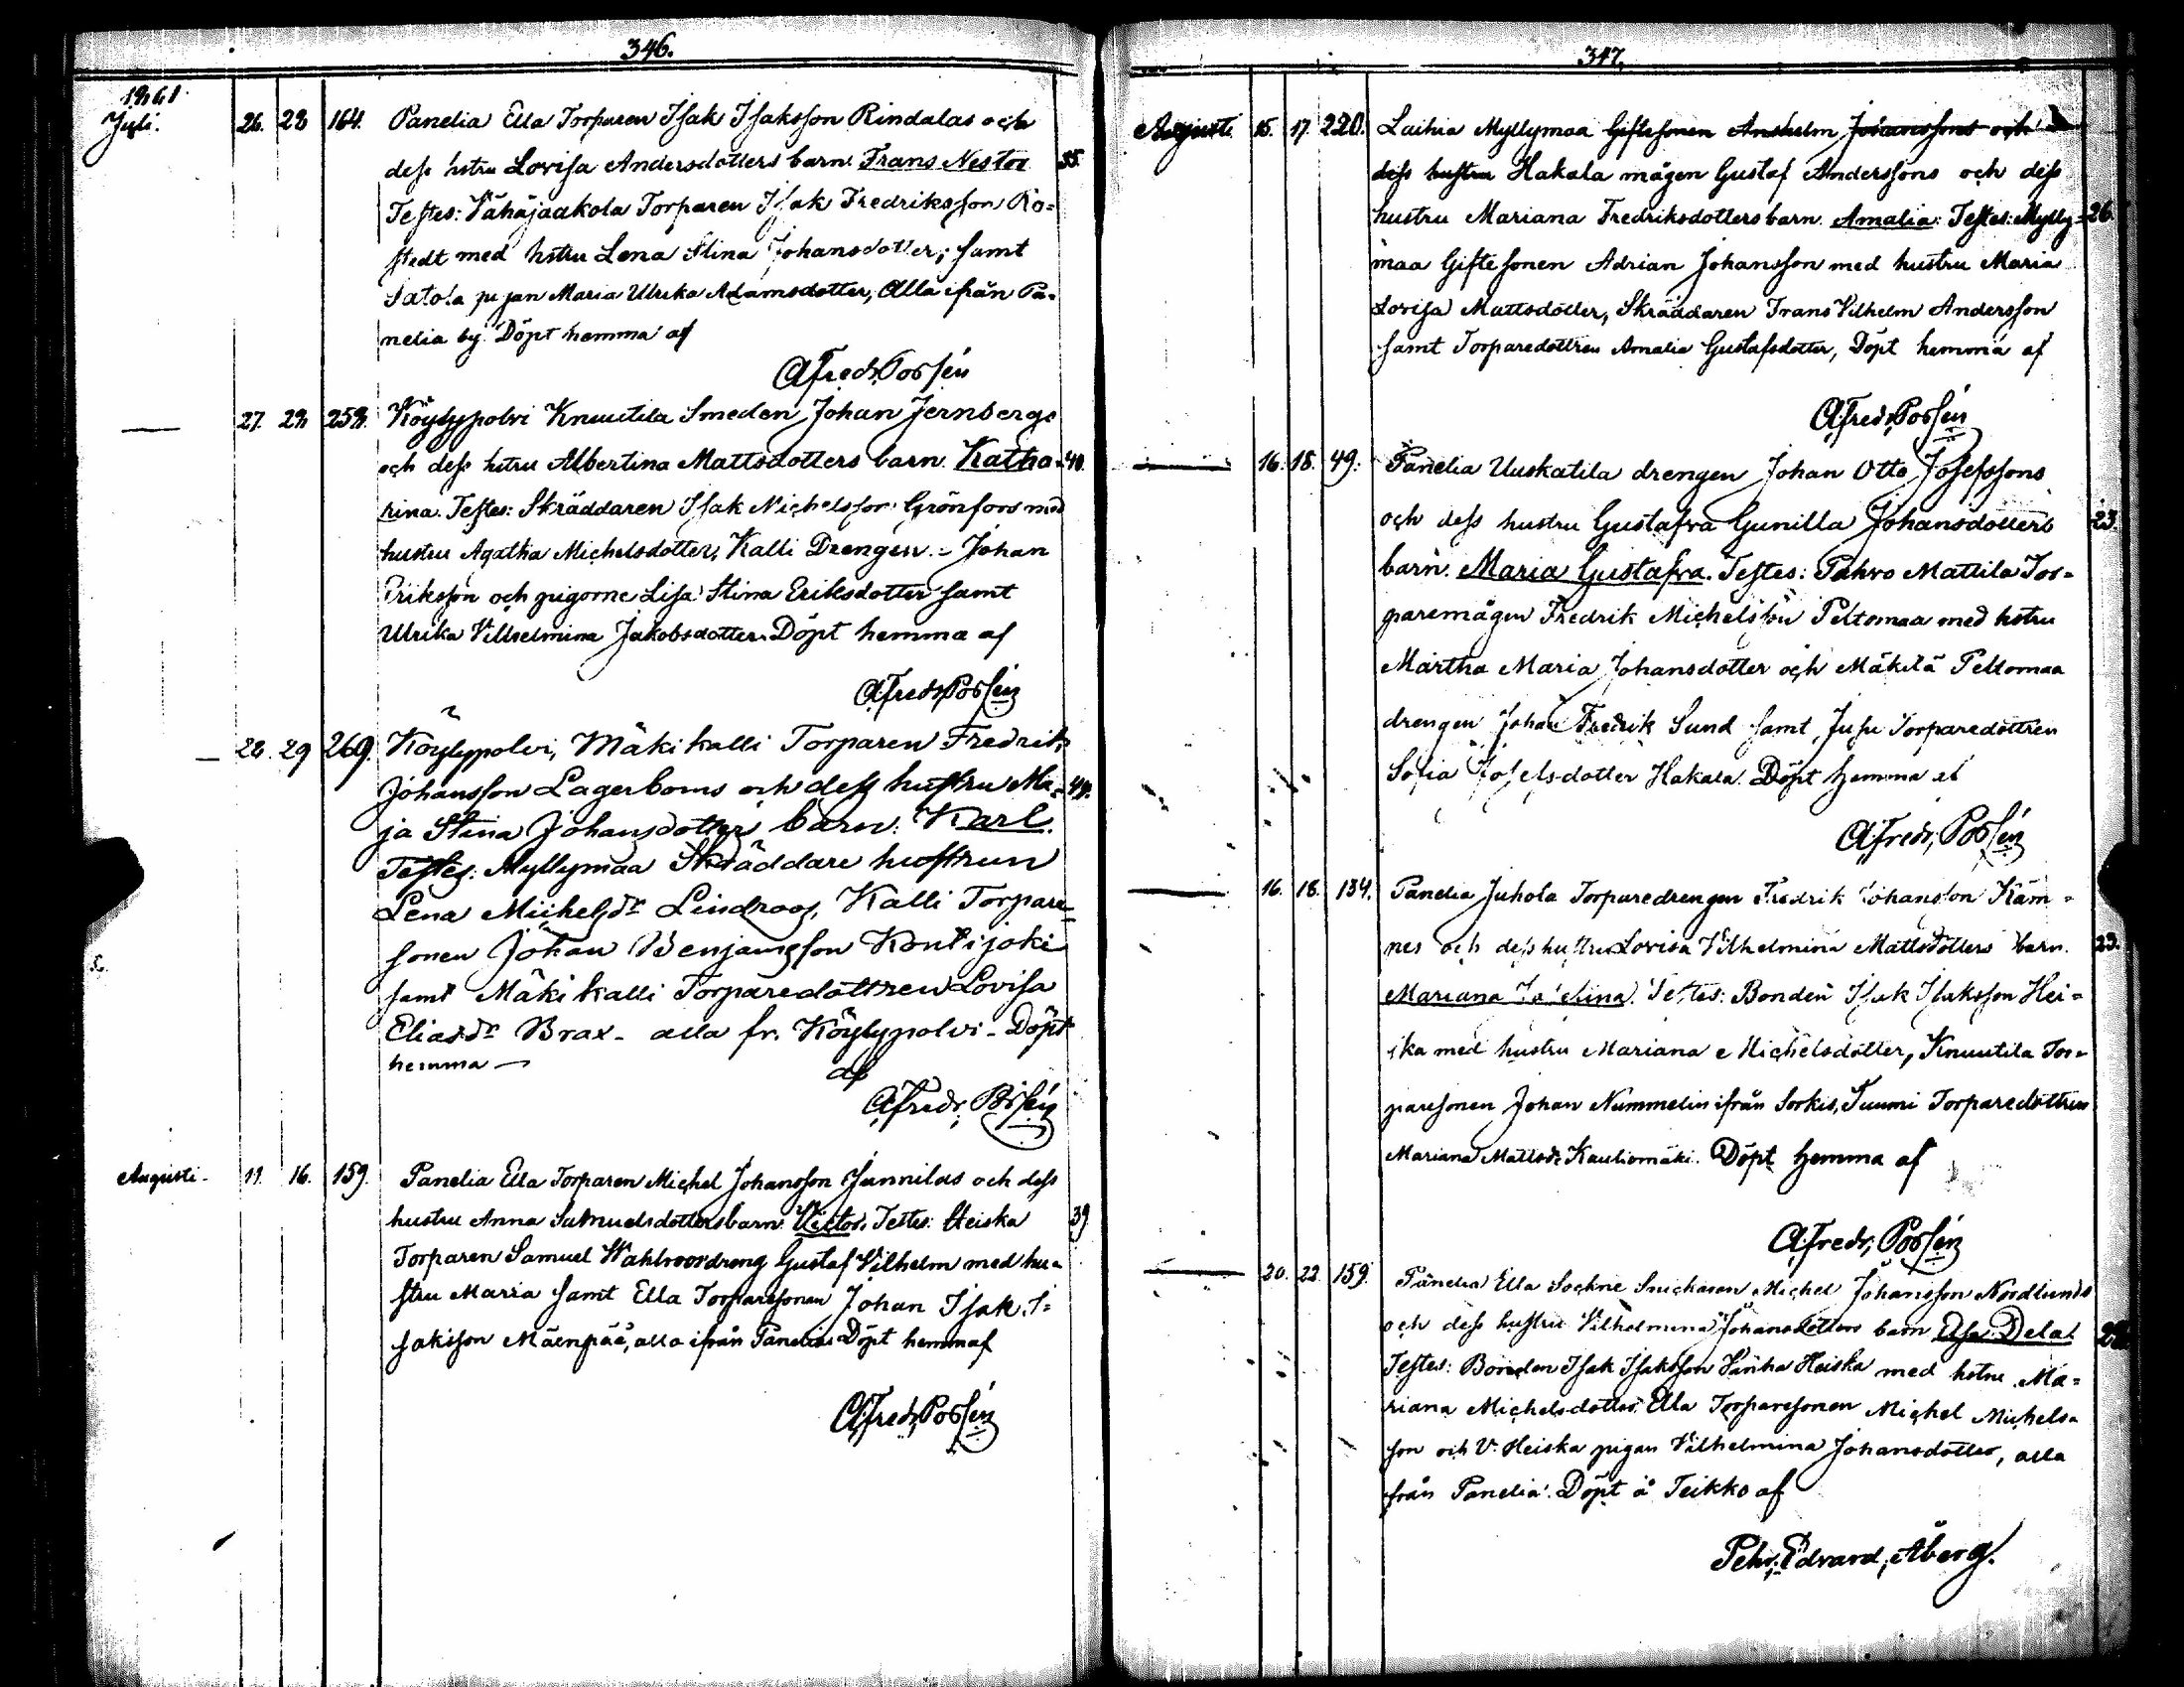 346.
1861
Juli. 26. 28 164. Panelia Ella Torparen Isak Isaksson Rindalas och
dess hstru Lovisa Andersdotters barn. Frans Nestor 35.
Testes: Vähäjaakola Torparen Isak Fredriksson Ro=
stedt med hstru Lena Stina Johansdotter; samt
Satola pigan Maria Ulrika Adamsdotter, Alla ifrån Pa=
nelia by. Döpt hemma af
Alfred Posén
— 27. 28 258. Köylypolvi Knuutila Smeden Johan Jernbergs
och dess hstru Albertina Mattsdotters barn. Katha= 40.
rina. Testes: Skräddaren Isak Michelsson Grönfors med
hustru Agatha Michelsdotter, Kalli Drengen - Johan
Eriksson och pigorne Lisa Stina Eriksdotter samt
Ulrika Vilhelmina Jakobsdotter. Döpt hemma af
Alfred Posén
— 28. 29 269. Köylypolvi, Mäkikalli Torparen Fredrik
Johansson Lagerboms och dess hustru Ma= 44.
ja Stina Johansdotter barn: Karl.
Testes: Myllymaa Skräddare hustrun
Lena Michelsdr Lindroos, Kalli Torpare=
sonen Johan Benjamsson Kontijoki
samt Mäkikalli Torparedottren Lovisa
Eliasdr Brax - alla fr. Köylypolvi - Döpt
hemma —
af
Alfred Posén
Augusti. 11. 16. 159. Panelia Ella Torparen Michel Johansson Junnilas och dess
hustru Anna Samuelsdotters barn. Victor. Testes: Heiska 39
Torparen Samuel Wahlroos dreng Gustaf Vilhelm med hu=
stru Maria samt Ella Torparesonen Johan Isak I=
saksson Mäenpää, alla ifrån Panelia. Döpt hemma af
Alfred Posén
347.
Augusti. 15. 17. 220. Laihia Myllymaa Giftesonen Anshelm Johanssons och
dess hustru Hakala mågen Gustaf Anderssons och dess
hustru Mariana Fredriksdotters barn. Amalia: Testes: Mylly= 26.
maa Giftesonen Adrian Johansson med hustru Maria
Lovisa Mattsdotter, Skräddaren Frans Vilhelm Andersson
samt Torparedottren Amalia Gustafsdotter, Döpt hemma af
Alfred Posén
— 16. 18. 49. Panelia Uuskatila drengen Johan Otto Josefssons
och dess hustru Gustafva Gunilla Johansdotters 23.
barn. Maria Gustafva. Testes: Pahvo Mattila Tor=
paremågen Fredrik Michelsson Peltomaa med hstru
Martha Maria Johansdotter och Mäkilä Peltomaa
drengen Johan Fredrik Sund samt Jusu Torparedottren
Sofia Josefsdotter Hakala. Döpt hemma af
Alfred Posén
— 16. 18. 134. Panelia Juhola Torparedrengen Fredrik Johansson Käm=
nes och dess hustru Lovisa Vilhelmina Mattsdotters barn. 23.
Mariana. Testes: Bonden Isak Isaksson Hei=
ska med hustru Mariana Michelsdotter, Knuutila Tor=
paresonen Johan Nummelin ifrån Sorkis, Tuumi Torparedottren
Mariana Mattsdr Kauliomäki. Döpt hemma af
Alfred Posén
— 20. 22. 159. Panelia Ella Sockne Snickaren Michel Johansson Nordlunds
och dess hustru Vilhelmina Johansdotters barn Dela.
Testes: Bonden Isak Isaksson Vanha Heiska med hstru Ma=
riana Michelsdotter. Ella Torparesonen Michel Michels=
son och V. Heiska pigan Vilhelmina Johansdotter, alla
från Panelia. Döpt å Teikko af
Pehr Edvard Åberg.